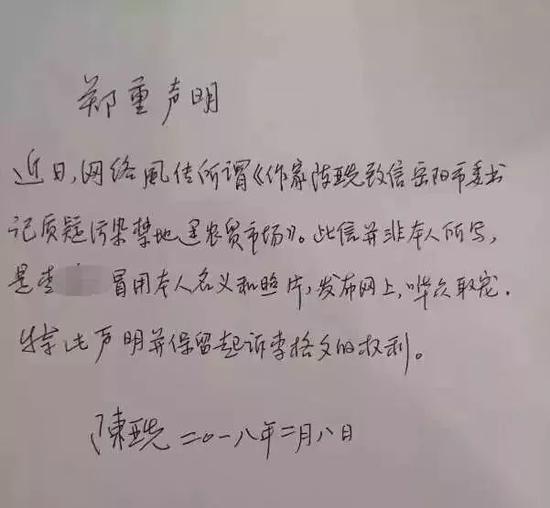 郑重声明
近日,网络風传所谓《作家陈亞先致信岳阳市委书
记质疑污染禁地建农贸市场》。此信并非本人所写,
是李 冒用本人名义和照片,发布网上,哗众取宠.
特此声明并保留起诉李格文的权利。
陳亞先 二〇一八年二月八日